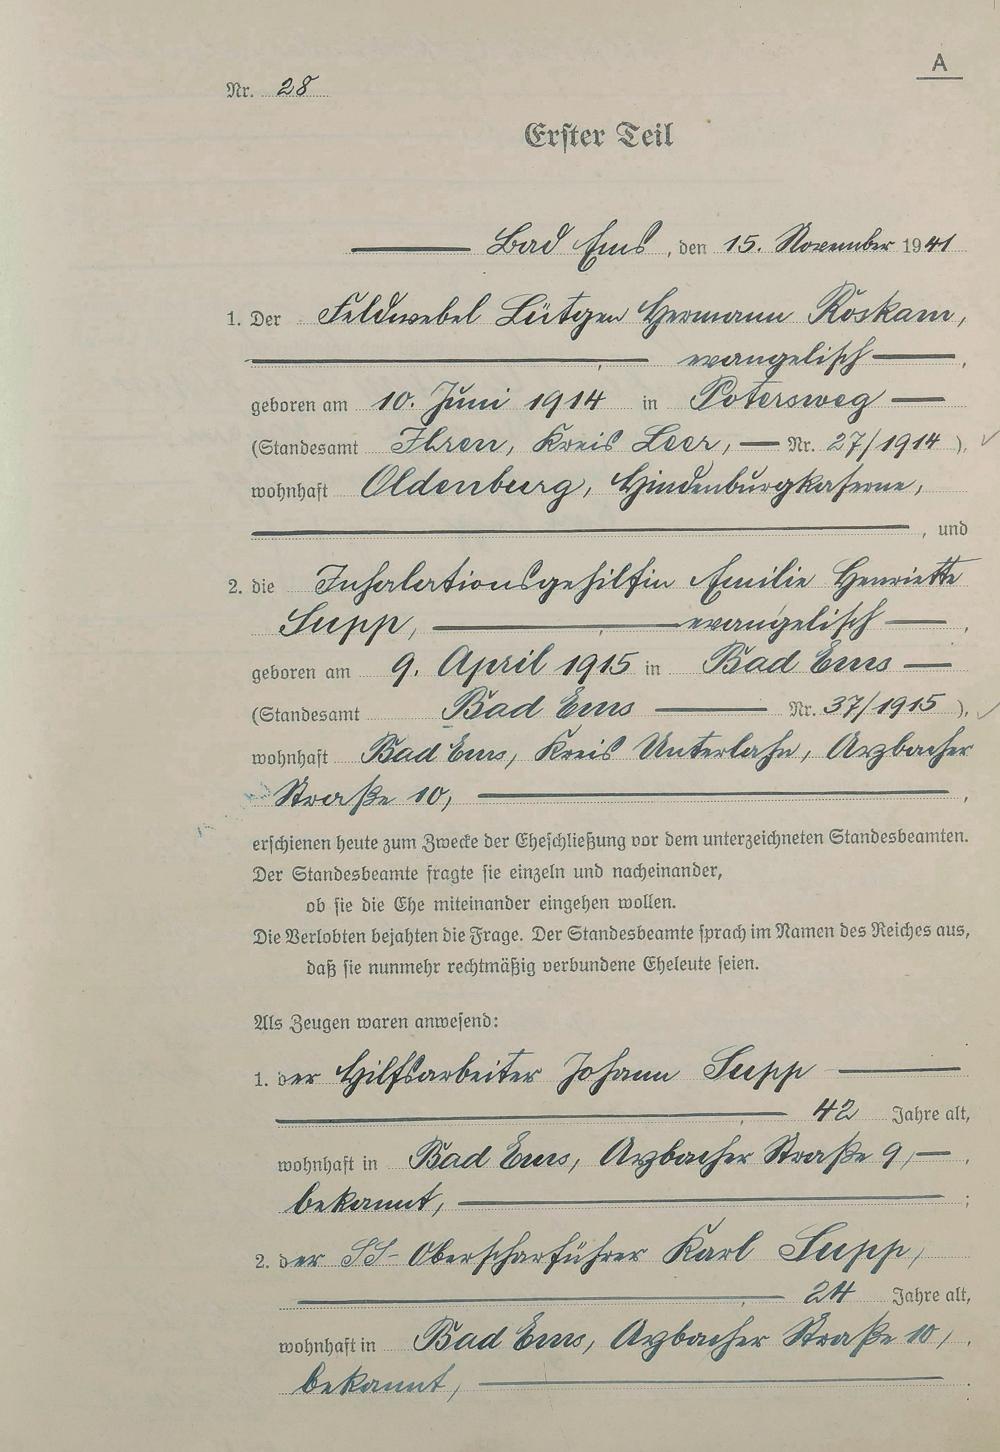 A
Nr. 28
Erster Teil
Bad Ems, den 15. November 1941
1. Der Feldwebel Lütgen Hermann Roskam,
evangelisch,
geboren am 10. Juni 1914 in Potersweg
(Standesamt Ihren, Kreis Leer, Nr. 27/1914),
wohnhaft Oldenburg, Hindenburgkaserne,
, und
2. die Inhalationsgehilfin Emilie Henriette
Supp, evangelisch,
geboren am 9. April 1915 in Bad Ems
(Standesamt Bad Ems Nr. 37/1915),
wohnhaft Bad Ems, Kreis Unterlahn, Arzbacher
Straße 10,
erschienen heute zum Zwecke der Eheschließung vor dem unterzeichneten Standesbeamten.
Der Standesbeamte fragte sie einzeln und nacheinander,
ob sie die Ehe miteinander eingehen wollen.
Die Verlobten bejahten die Frage. Der Standesbeamte sprach im Namen des Reiches aus,
daß sie nunmehr rechtmäßig verbundene Eheleute seien.
Als Zeugen waren anwesend:
1. der Hilfsarbeiter Johann Supp
42 Jahre alt,
wohnhaft in Bad Ems, Arzbacher Straße 9,
bekannt, ;
2. der SS-Oberscharführer Karl Supp,
24 Jahre alt,
wohnhaft in Bad Ems, Arzbacher Straße 10,
bekannt,